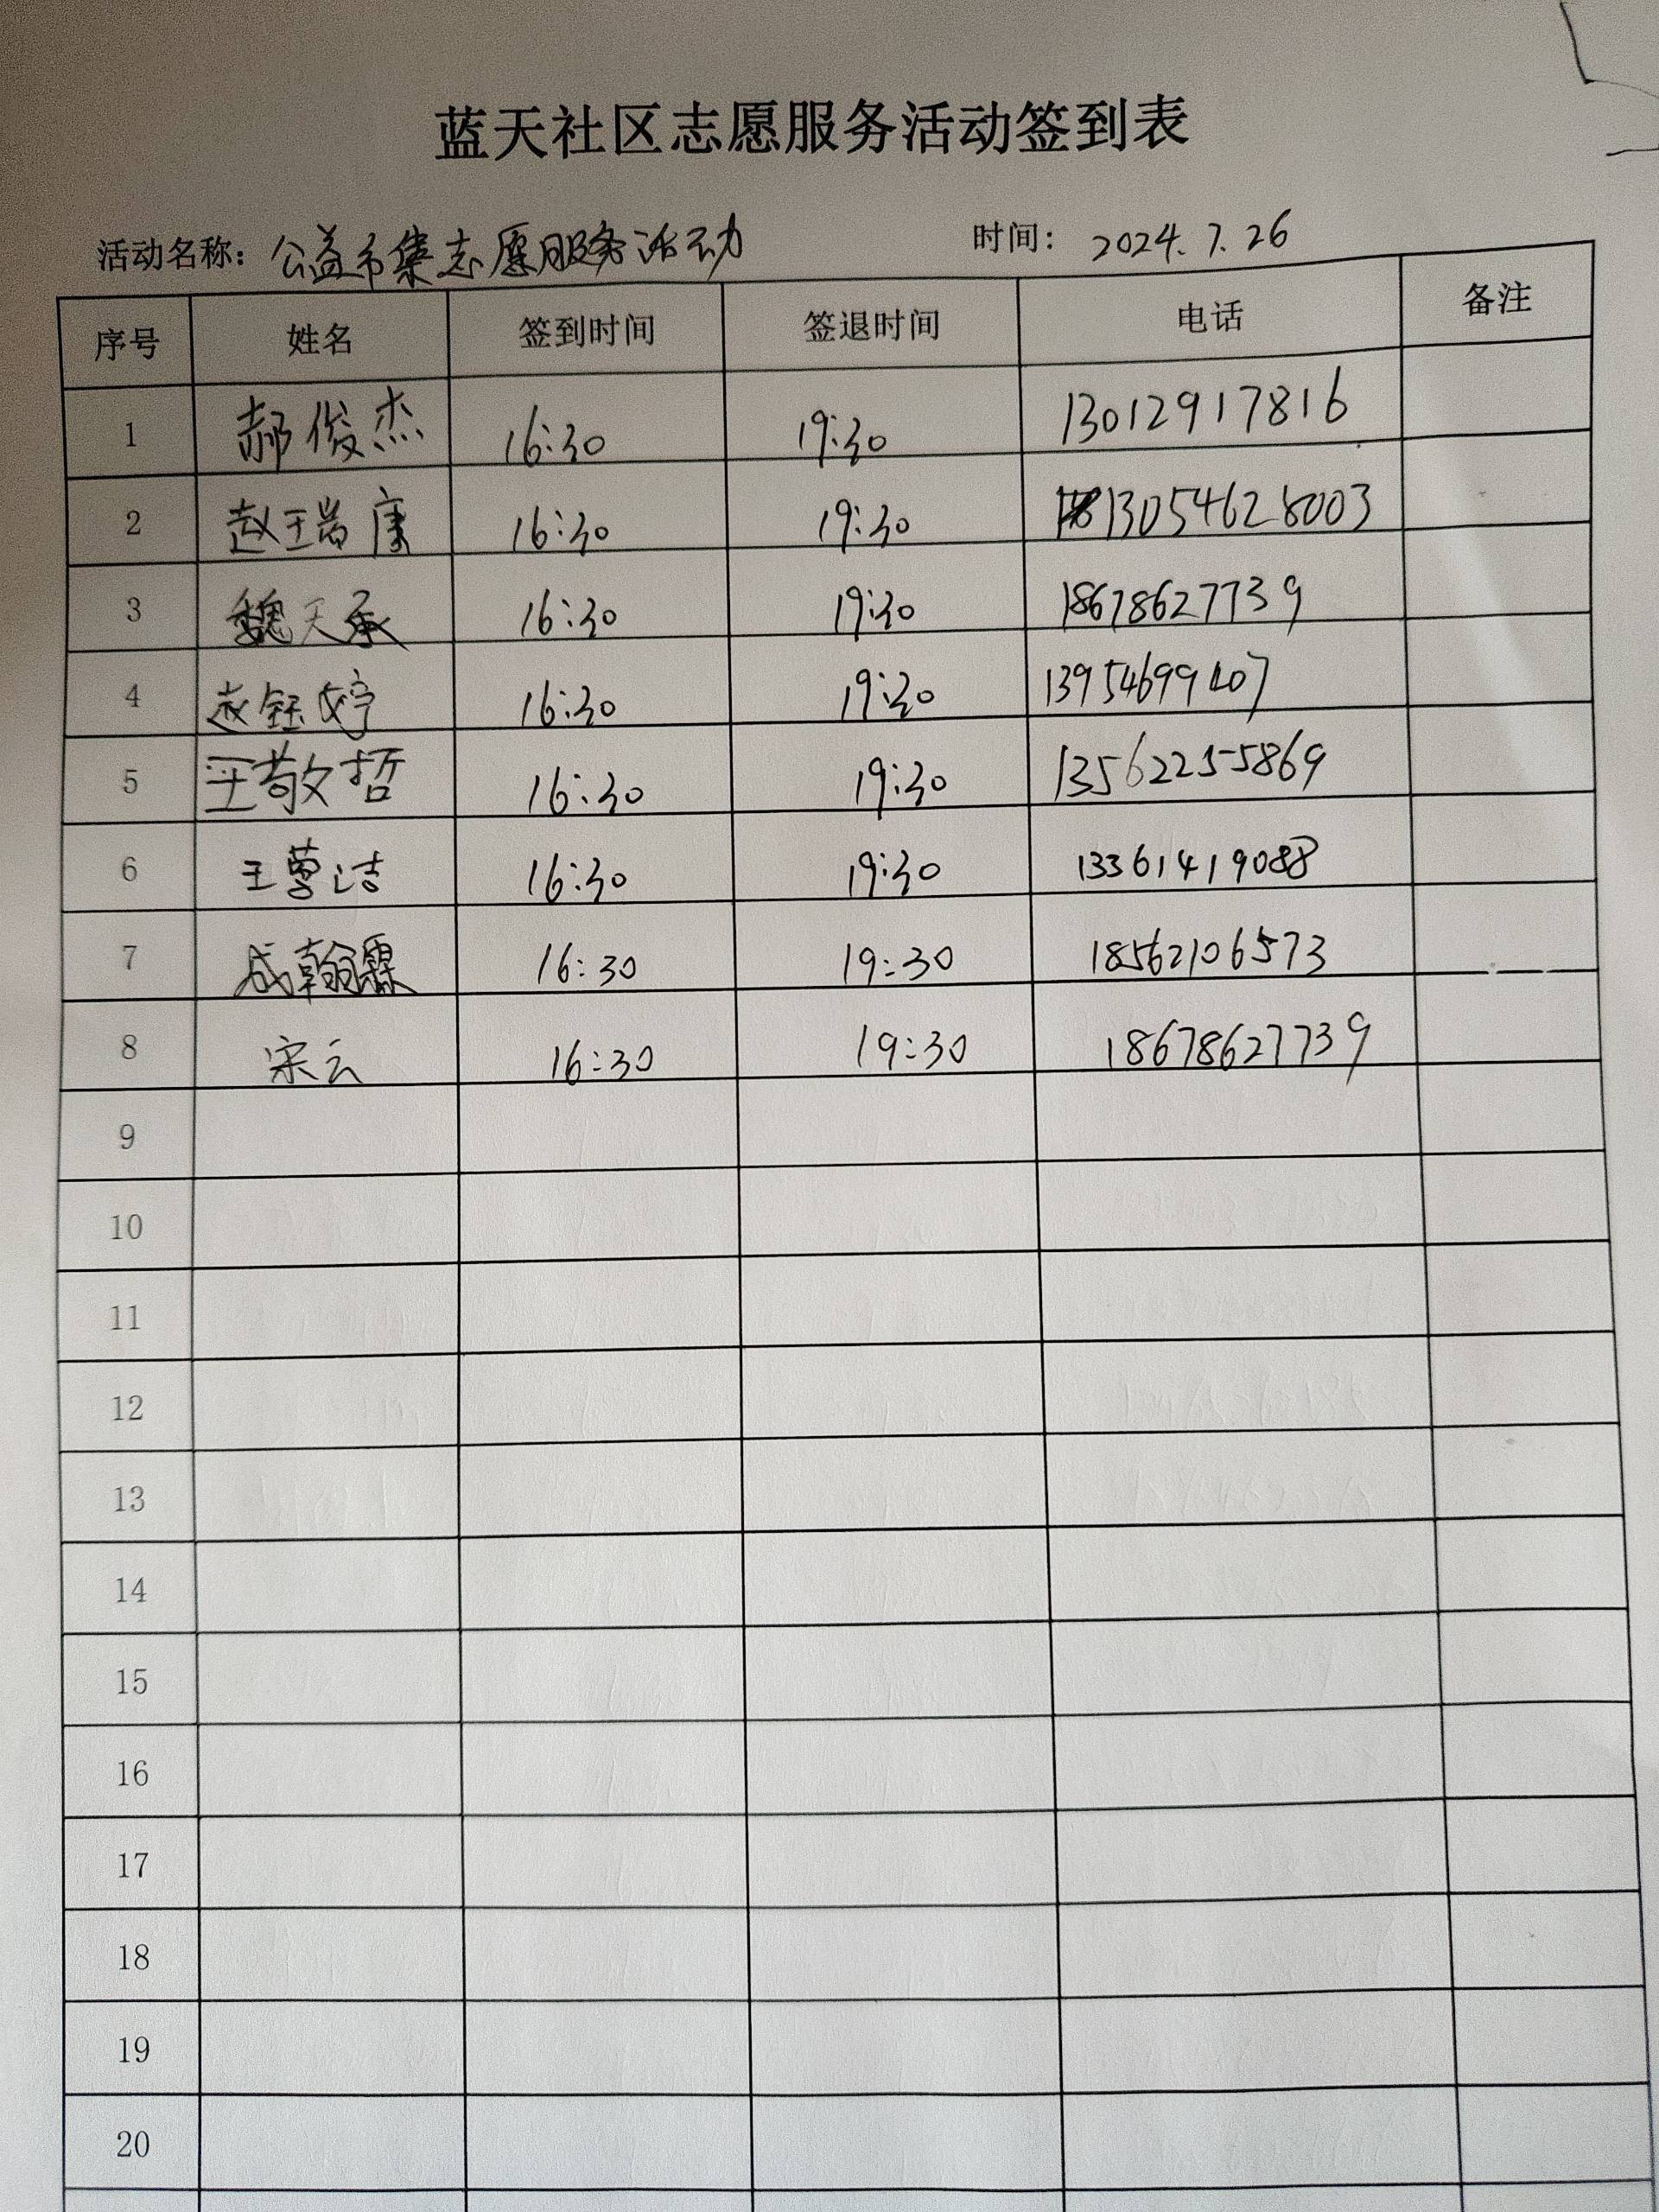 蓝天社区志愿服务活动签到表
活动名称：公益市集志愿服务活动 时间：2024.7.26
序号 姓名 签到时间 签退时间 电话 备注
1 郝俊杰 16:30 19:30 13012917816
2 赵王瑞康 16:30 19:30 13054628003
3 魏天承 16:30 19:30 18678627739
4 赵钰婷 16:30 19:30
5 王敬哲 16:30 19:30 13562255869
6 王 洁 16:30 19:30 13361419088
7 成翰霖 16:30 19:30 18562106573
8 宋云 16:30 19:30 18678627739
9
10
11
12
13
14
15
16
17
18
19
20